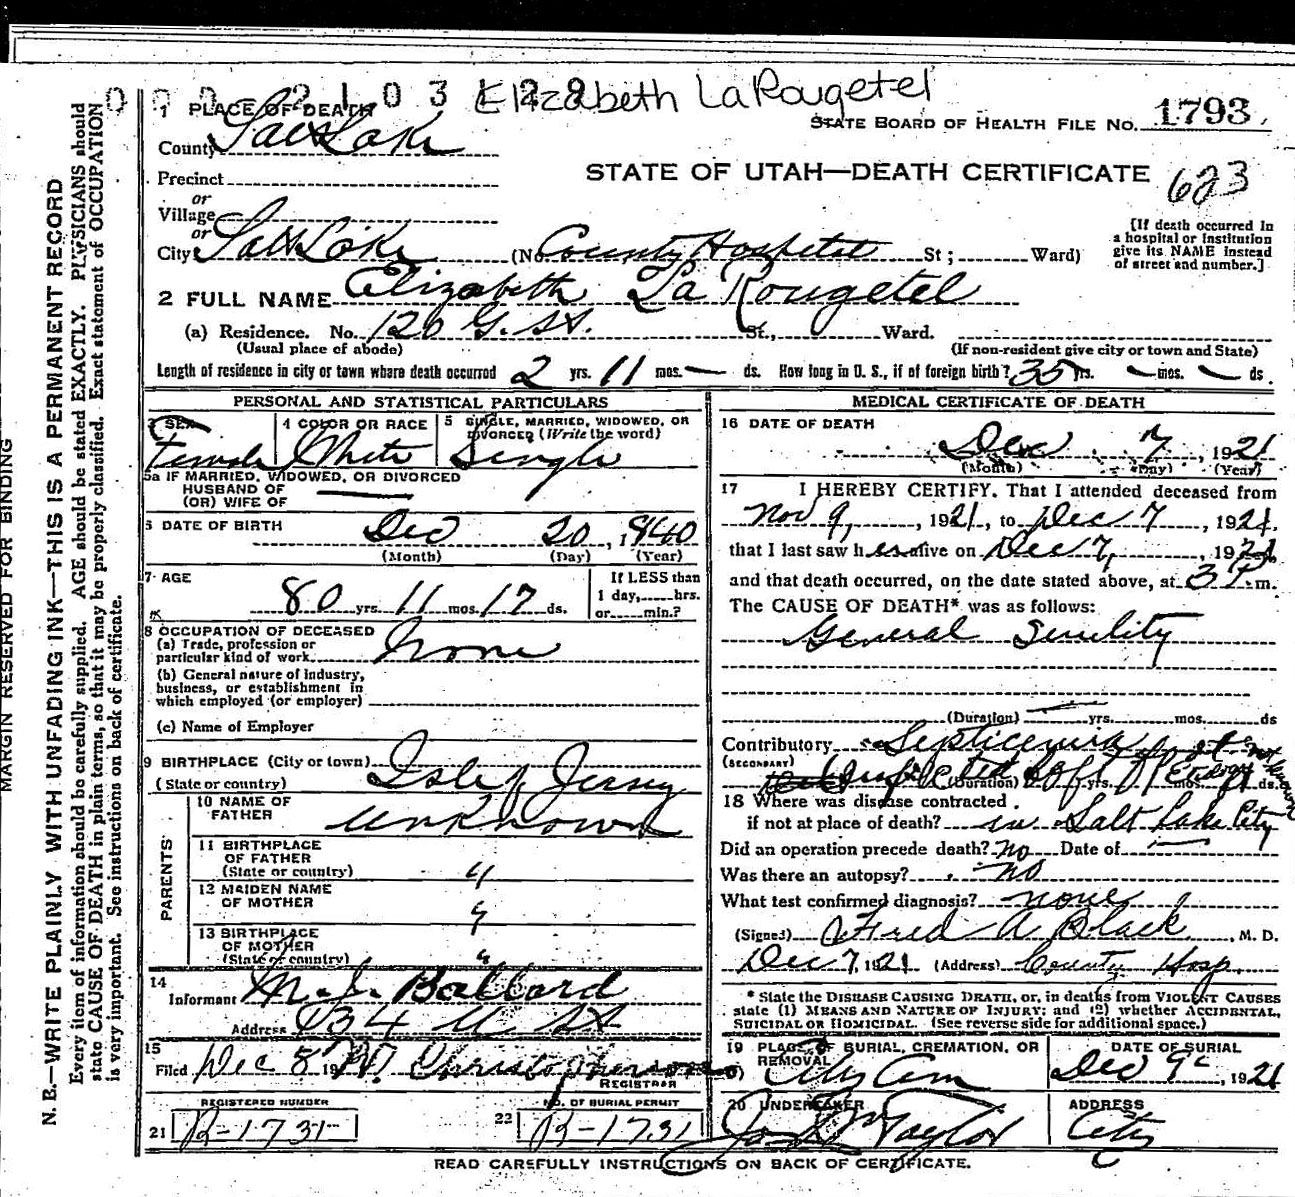 0 0 0 2 1 0 3 1 2 2 Elizabeth LaRougetel
1 PLACE OF DEATH
STATE BOARD OF HEALTH FILE NO. 1793
County Salt Lake
STATE OF UTAH—DEATH CERTIFICATE 623
Precinct
or
Village
or
City Salt Lake (No. County Hospital St; Ward)
[If death occurred in
a hospital or institution
give its NAME instead
of street and number.]
2 FULL NAME Elizabeth La Rougetel
(a) Residence. No. 120 G. St. St., Ward.
(Usual place of abode) (If non-resident give city or town and State)
Length of residence in city or town where death occurred 2 yrs. 11 mos. — ds. How long in U. S., if of foreign birth? 35 yrs. — mos. — ds.
PERSONAL AND STATISTICAL PARTICULARS
3 SEX 4 COLOR OR RACE 5 SINGLE, MARRIED, WIDOWED, OR
DIVORCED (Write the word)
Female White Single
5a IF MARRIED, WIDOWED, OR DIVORCED
HUSBAND OF
(OR) WIFE OF —
6 DATE OF BIRTH Dec 20, 1840
(Month) (Day) (Year)
7 AGE If LESS than
80 yrs. 11 mos. 17 ds. 1 day,......hrs.
or......min.?
8 OCCUPATION OF DECEASED
(a) Trade, profession or
particular kind of work None
(b) General nature of industry,
business, or establishment in
which employed (or employer)
(c) Name of Employer
9 BIRTHPLACE (City or town) Isle of Jersey
(State or country)
PARENTS
10 NAME OF
FATHER unknown
11 BIRTHPLACE
OF FATHER
(State or country) "
12 MAIDEN NAME
OF MOTHER "
13 BIRTHPLACE
OF MOTHER
(State or country) "
14
Informant M. J. Ballard
Address 434 U St
15
Filed Dec 8 19 W. Christopherson
REGISTRAR
REGISTERED NUMBER NO. OF BURIAL PERMIT
21 B-1731 22 B-1731
MEDICAL CERTIFICATE OF DEATH
16 DATE OF DEATH
Dec 7, 1921
(Month) (Day) (Year)
17 I HEREBY CERTIFY, That I attended deceased from
Nov 9, 1921, to Dec 7, 1921.
that I last saw her alive on Dec 7, 1921
and that death occurred, on the date stated above, at 3 P.m.
The CAUSE OF DEATH* was as follows:
General Senility
(Duration) yrs. mos. ds
Contributory Septicemia
(SECONDARY) (Duration) yrs. mos. ds.
18 Where was disease contracted
if not at place of death? in Salt Lake City
Did an operation precede death? no Date of —
Was there an autopsy? no
What test confirmed diagnosis? none
(Signed) Fred A Black, M. D.
Dec 7, 1921 (Address) County Hosp.
* State the DISEASE CAUSING DEATH, or, in deaths from VIOLENT CAUSES
state (1) MEANS AND NATURE OF INJURY; and (2) whether ACCIDENTAL,
SUICIDAL OR HOMICIDAL. (See reverse side for additional space.)
19 PLACE OF BURIAL, CREMATION, OR
REMOVAL DATE OF BURIAL
City Cem Dec 9, 1921
20 UNDERTAKER ADDRESS
Taylor City
READ CAREFULLY INSTRUCTIONS ON BACK OF CERTIFICATE.
MARGIN RESERVED FOR BINDING
N. B.—WRITE PLAINLY WITH UNFADING INK—THIS IS A PERMANENT RECORD
Every item of information should be carefully supplied. AGE should be stated EXACTLY. PHYSICIANS should
state CAUSE OF DEATH in plain terms, so that it may be properly classified. Exact statement of OCCUPATION
is very important. See instructions on back of certificate.